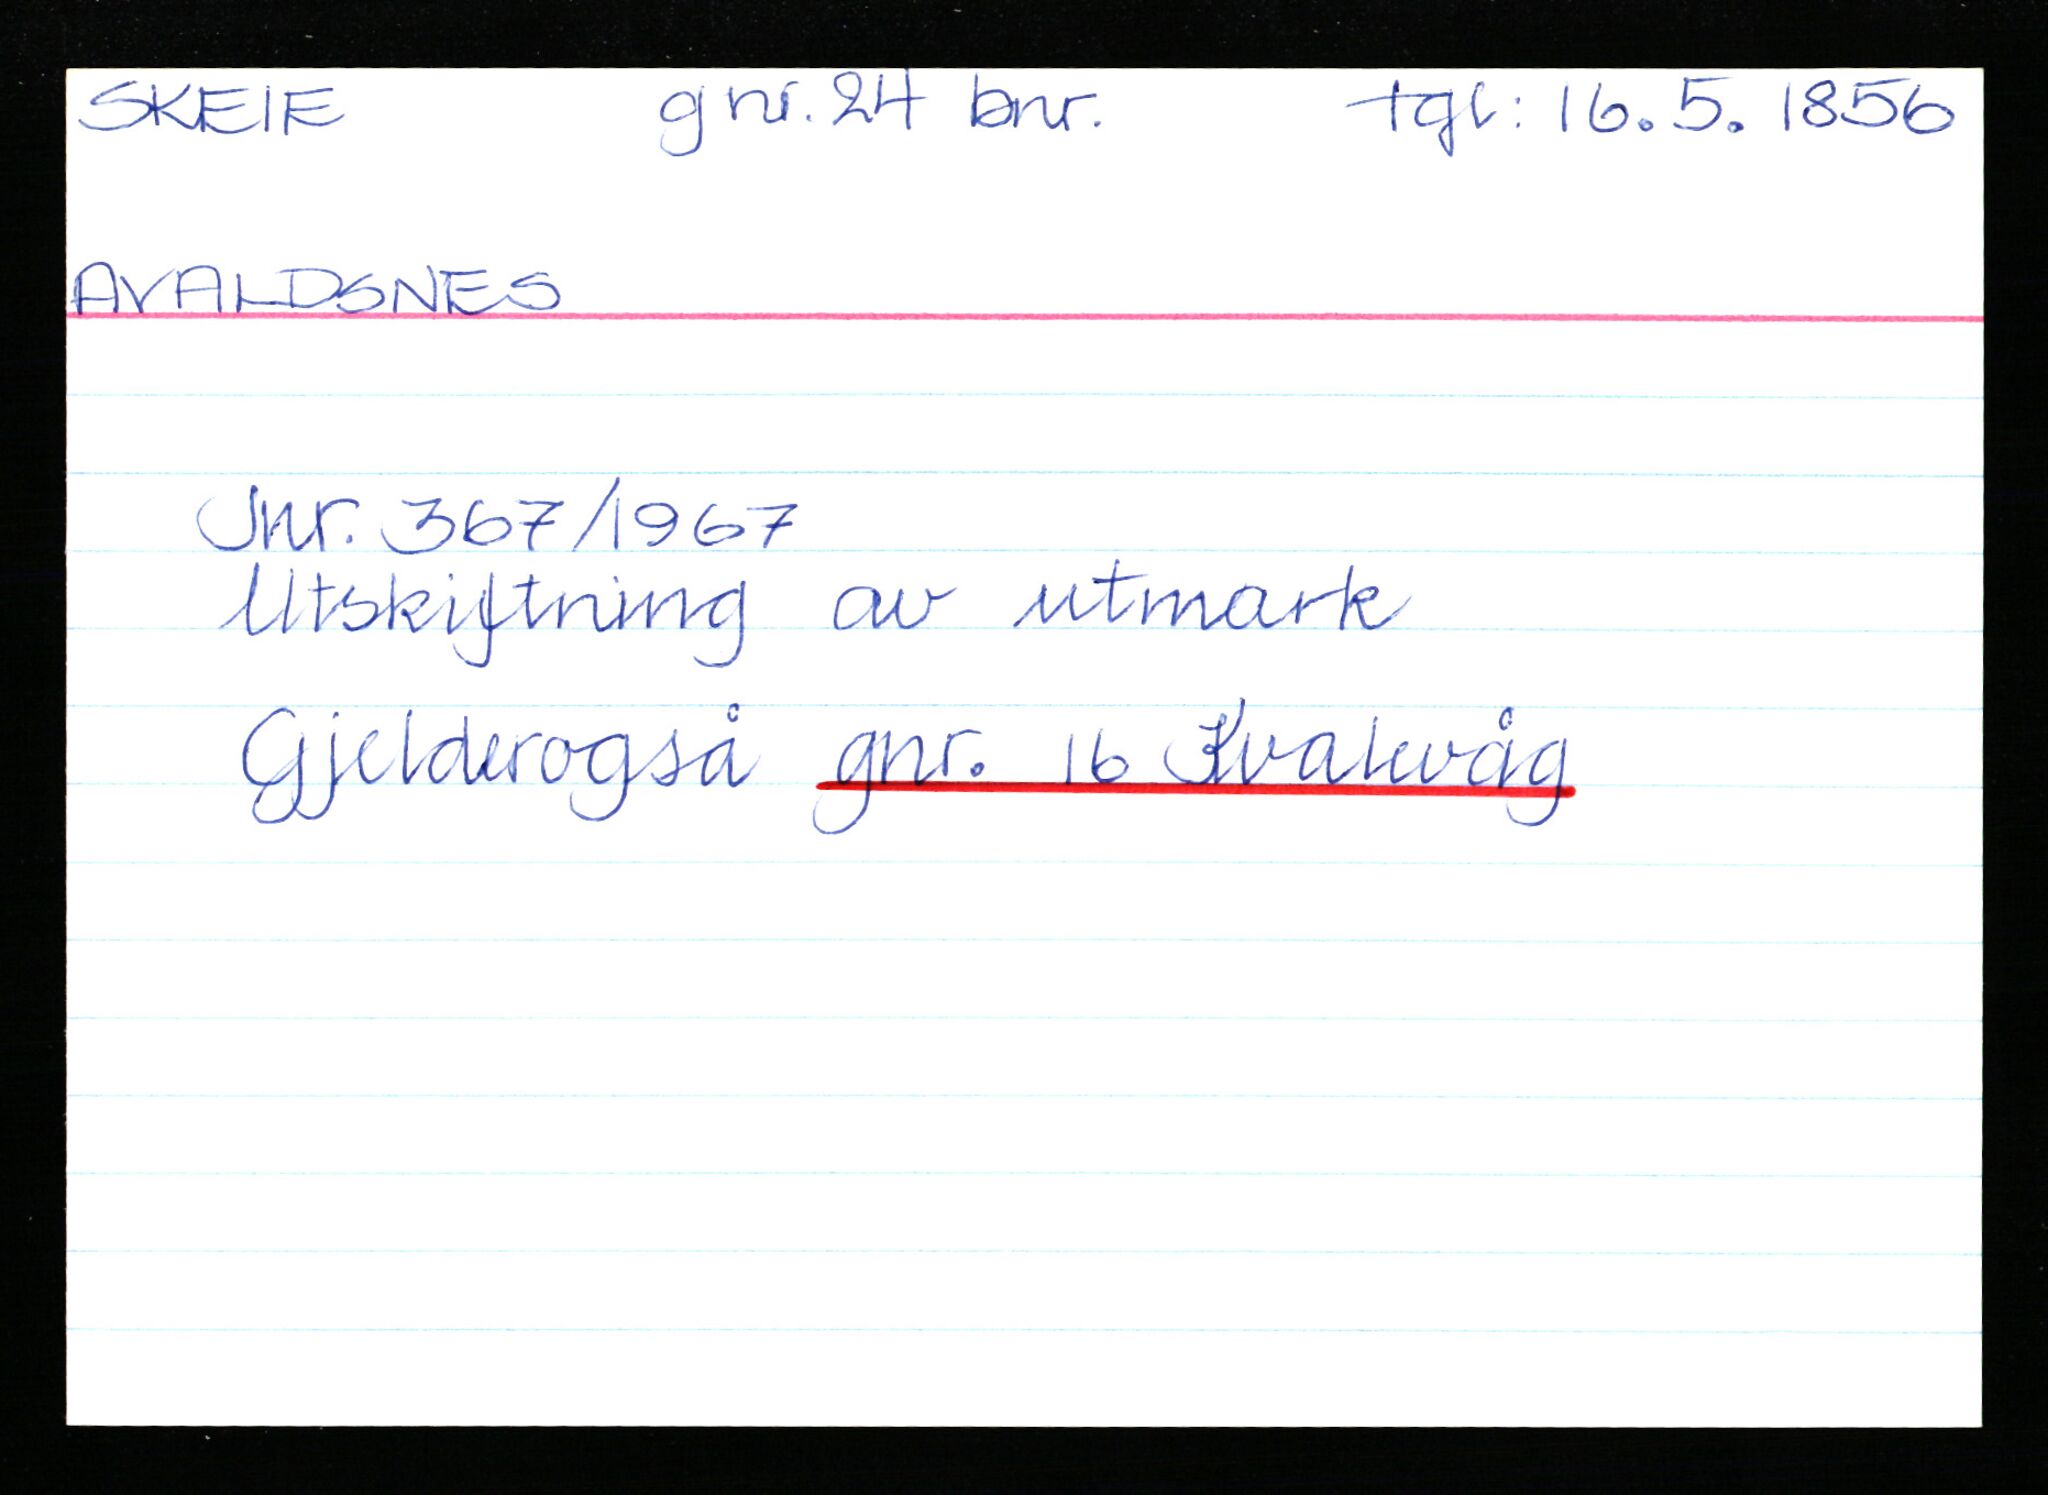 SKEIE gnr. 24 bnr. tgl: 16.5.1856
AVALDSNES
Jnr. 367/1967
Utskiftning av utmark
Gjelder også gnr. 16 Kvalevåg